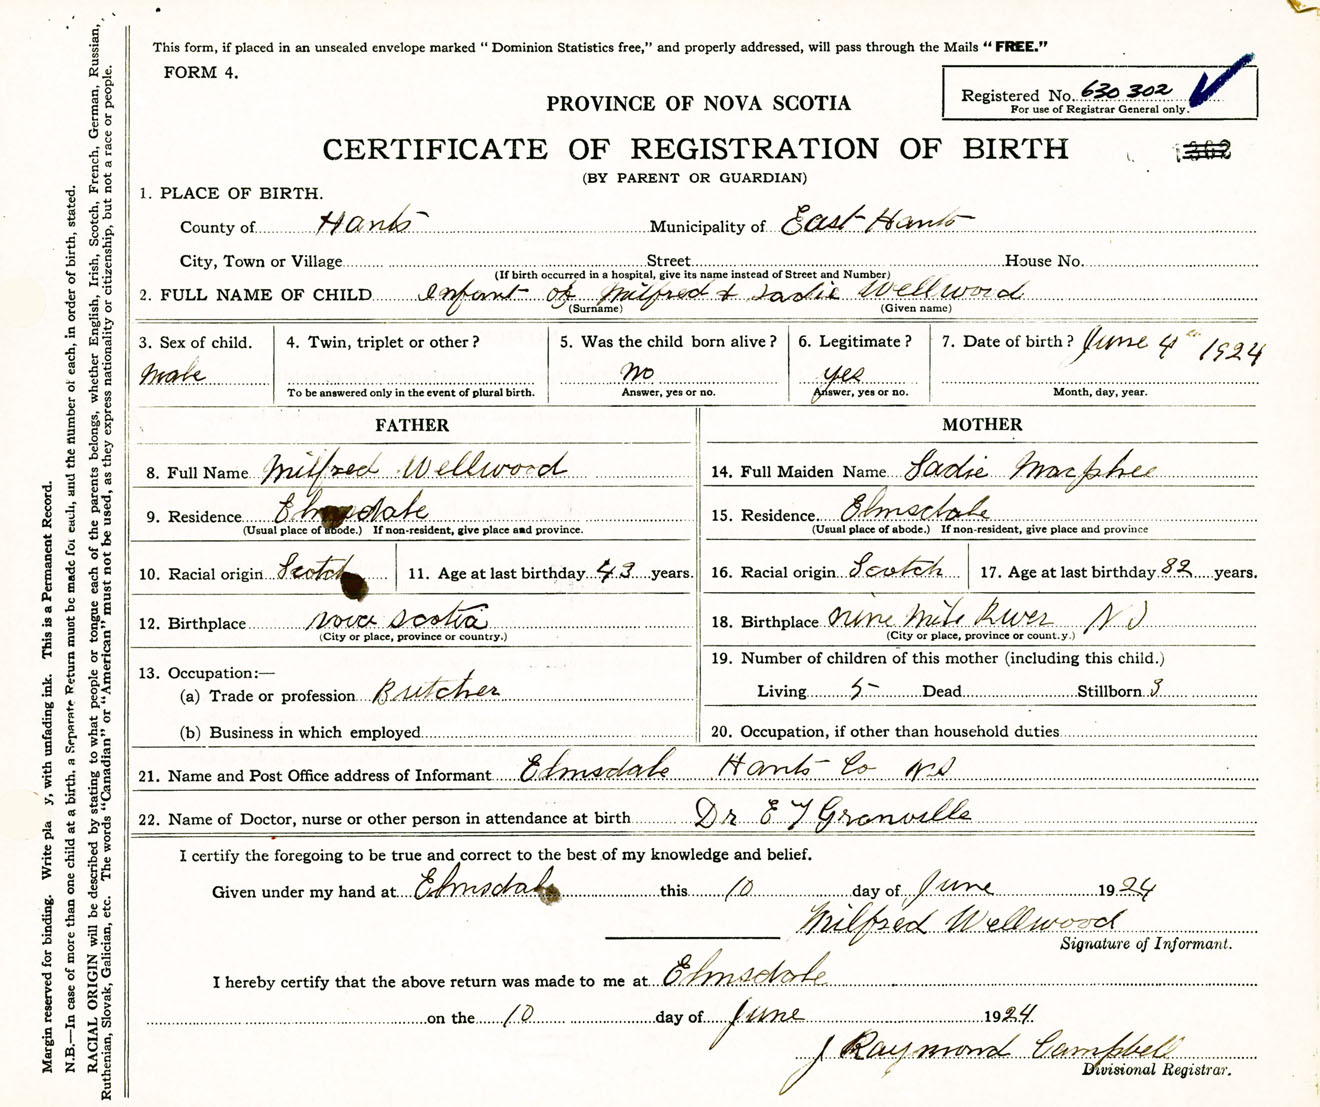 This form, if placed in an unsealed envelope marked "Dominion Statistics free," and properly addressed, will pass through the Mails "FREE."
FORM 4.
Registered No. 630 302
For use of Registrar General only.
PROVINCE OF NOVA SCOTIA
CERTIFICATE OF REGISTRATION OF BIRTH
(BY PARENT OR GUARDIAN)
1. PLACE OF BIRTH.
County of Hants Municipality of East Hants
City, Town or Village Street House No.
(If birth occurred in a hospital, give its name instead of Street and Number)
2. FULL NAME OF CHILD Infant of Milfred & Sadie Wellwood
(Surname) (Given name)
3. Sex of child. 4. Twin, triplet or other? 5. Was the child born alive? 6. Legitimate? 7. Date of birth? June 4th 1924
male No yes
To be answered only in the event of plural birth. Answer, yes or no. Answer, yes or no. Month, day, year.
FATHER MOTHER
8. Full Name Milfred Wellwood 14. Full Maiden Name Sadie Macphee
9. Residence Elmsdale 15. Residence Elmsdale
(Usual place of abode.) If non-resident, give place and province. (Usual place of abode.) If non-resident, give place and province
10. Racial origin Scotch 11. Age at last birthday 43 years. 16. Racial origin Scotch 17. Age at last birthday 32 years.
12. Birthplace Nova Scotia 18. Birthplace Nine Mile River N S
(City or place, province or country.) (City or place, province or count.y.)
19. Number of children of this mother (including this child.)
13. Occupation:—
(a) Trade or profession Butcher Living 5 Dead Stillborn 3
(b) Business in which employed 20. Occupation, if other than household duties
21. Name and Post Office address of Informant Elmsdale Hants Co NS
22. Name of Doctor, nurse or other person in attendance at birth Dr E T Granville
I certify the foregoing to be true and correct to the best of my knowledge and belief.
Given under my hand at Elmsdale this 10 day of June 1924
Milfred Wellwood
Signature of Informant.
I hereby certify that the above return was made to me at Elmsdale
on the 10 day of June 1924
J Raymond Campbell
Divisional Registrar.
Margin reserved for binding. Write pla y, with unfading ink. This is a Permanent Record.
N.B.—In case of more than one child at a birth, a Separate Return must be made for each, and the number of each, in order of birth, stated.
RACIAL ORIGIN will be described by stating to what people or tongue each of the parents belongs, whether English, Irish, Scotch, French, German, Russian,
Ruthenian, Slovak, Galician, etc. The words "Canadian" or "American" must not be used, as they express nationality or citizenship, but not a race or people.